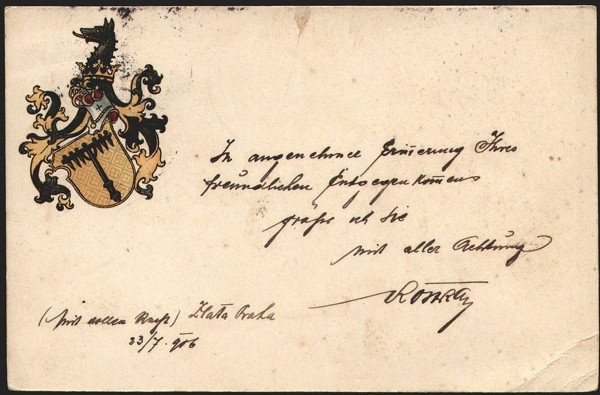 In angenehmer Erinnerung Ihres
freundlichen Entgegenkommens
grüße ich Sie
mit aller Achtung
(Mit vollem Recht) Zlata Praha
23/7. 906